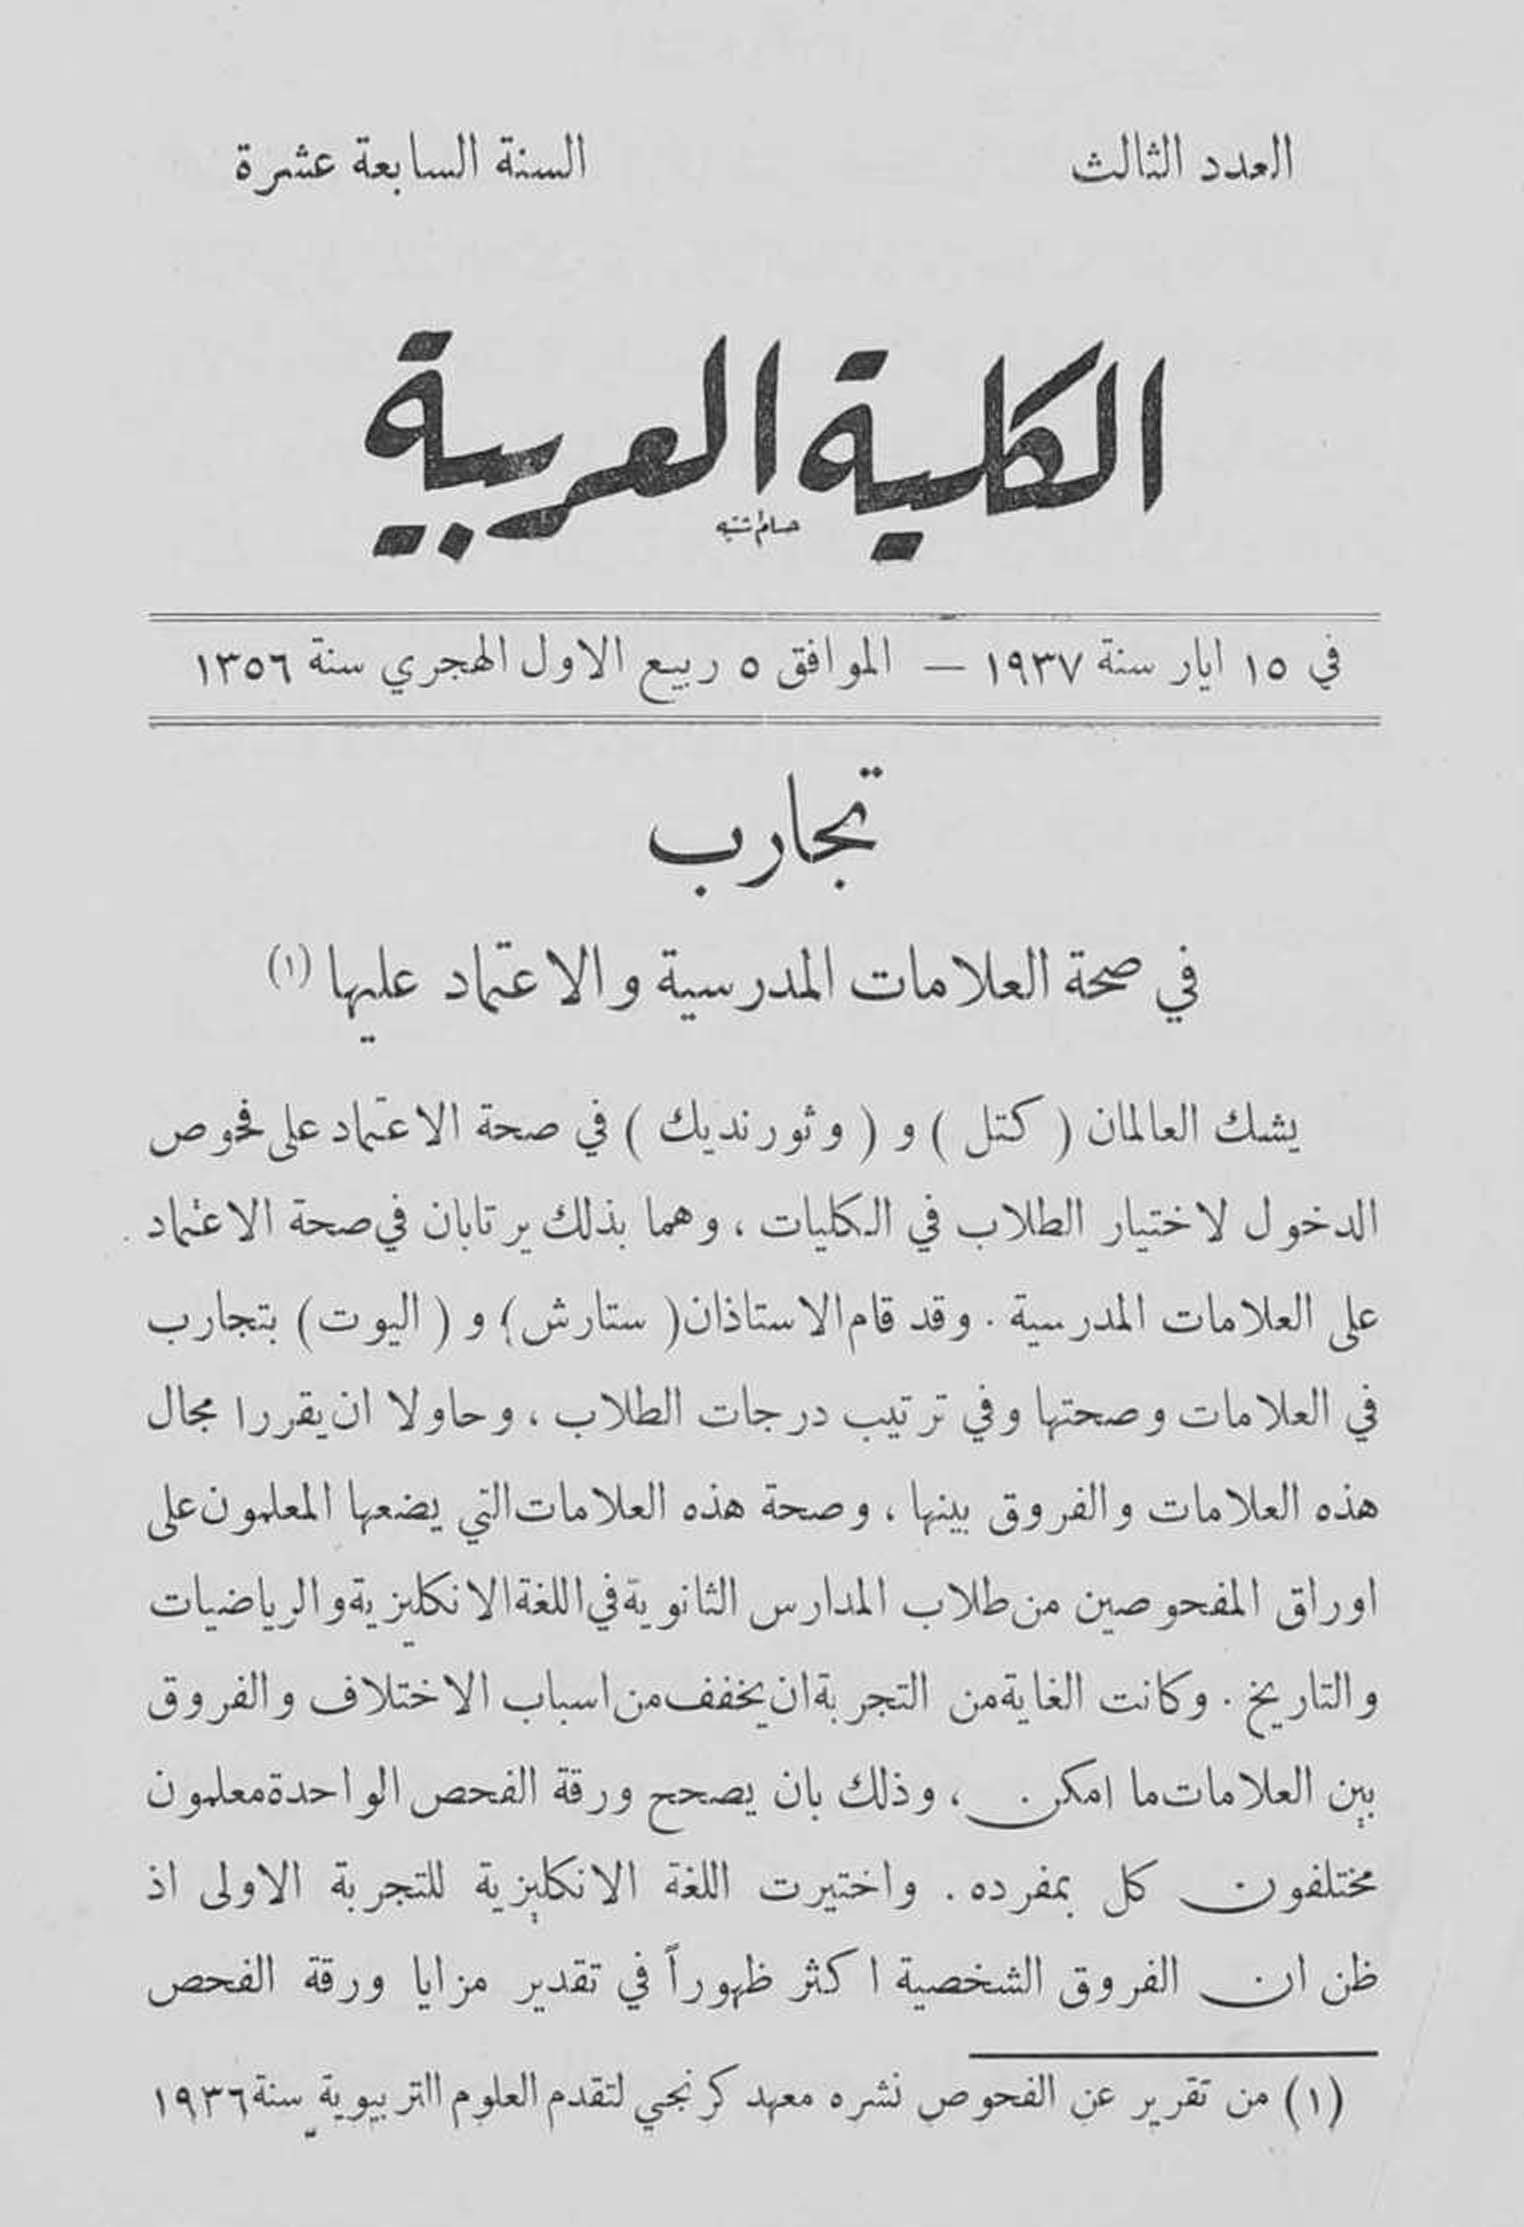 العدد الثالث
السنة السابعة عشرة
الكلية العربية
في ١٥ ايار سنة ١٩٣٧ — الموافق ٥ ربيع الاول الهجري سنة ١٣٥٦
تجارب
في صحة العلامات المدرسية والاعتماد عليها (١)
يشك العالمان ( كتل ) و ( وثورنديك ) في صحة الاعتماد على فحوص
الدخول لاختيار الطلاب في الكليات ، وهما بذلك يرتابان في صحة الاعتماد
على العلامات المدرسية . وقد قام الاستاذان ( ستارش ) و ( اليوت ) بتجارب
في العلامات وصحتها وفي ترتيب درجات الطلاب ، وحاولا ان يقررا مجال
هذه العلامات والفروق بينها ، وصحة هذه العلامات التي يضعها المعلمون على
اوراق المفحوصين من طلاب المدارس الثانوية في اللغة الانكليزية والرياضيات
والتاريخ . وكانت الغاية من التجربة ان يخفف من اسباب الاختلاف والفروق
بين العلامات ما امكن ، وذلك بان يصحح ورقة الفحص الواحدة معلمون
مختلفون كل بمفرده . واختيرت اللغة الانكليزية للتجربة الاولى اذ
ظن ان الفروق الشخصية اكثر ظهوراً في تقدير مزايا ورقة الفحص
(١) من تقرير عن الفحوص نشره معهد كرنجي لتقدم العلوم التربيوية سنة ١٩٣٦